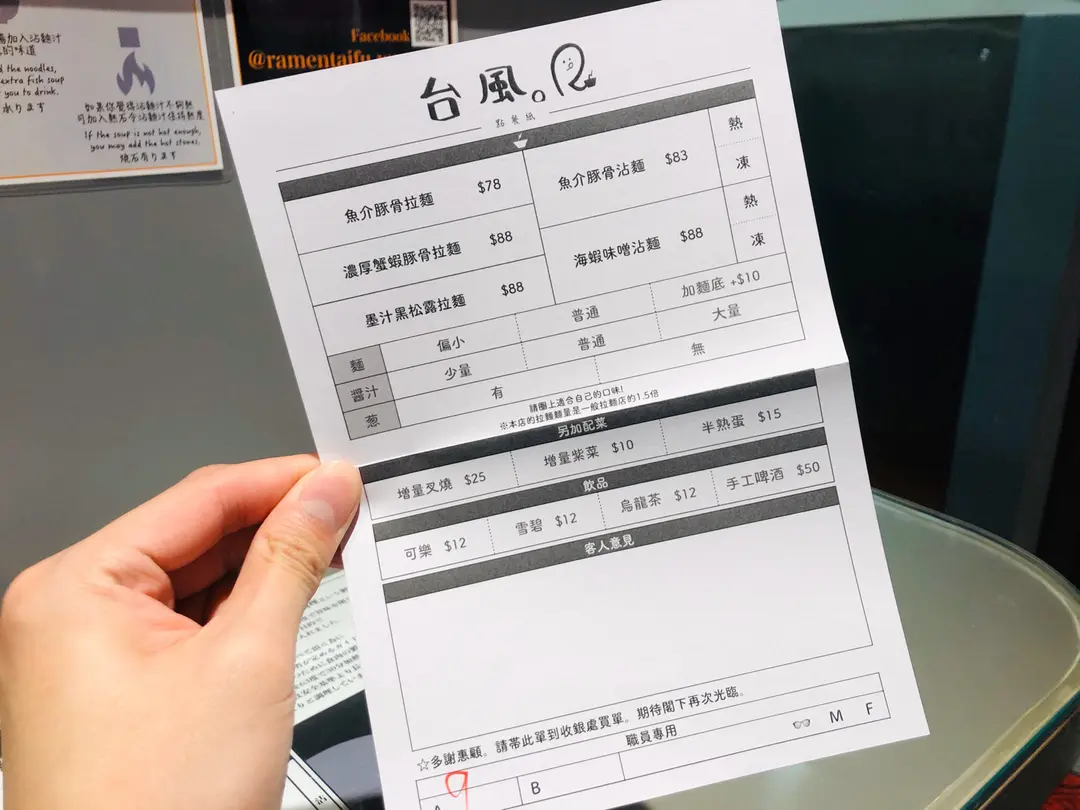 加入沾麵汁
的味道
the noodles,
extra fish soup
you to drink.
承ります
如果你覺得沾麵汁不夠熱
可加入熱石令沾麵汁保持熱度
If the soup is not hot enough,
you may add the hot stones.
焼石有ります
Facebook
@ramentaifu
台風。
點餐紙
魚介豚骨拉麵 $78
濃厚蟹蝦豚骨拉麵 $88
墨汁黑松露拉麵 $88
魚介豚骨沾麵 $83 熱 凍
海蝦味噌沾麵 $88 熱 凍
麵 偏小 普通 加麵底 +$10
醬汁 少量 普通 大量
葱 有 無
請圈上適合自己的口味!
※本店的拉麵麵量是一般拉麵店的1.5倍
另加配菜
增量叉燒 $25 增量紫菜 $10 半熟蛋 $15
飲品
可樂 $12 雪碧 $12 烏龍茶 $12 手工啤酒 $50
客人意見
☆多謝惠顧。請帶此單到收銀處買單。期待閣下再次光臨。
職員專用
A 9 B M F